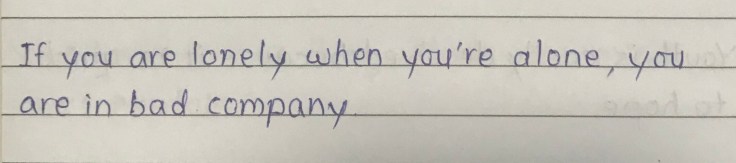 If you are lonely when you're alone, you
are in bad company.